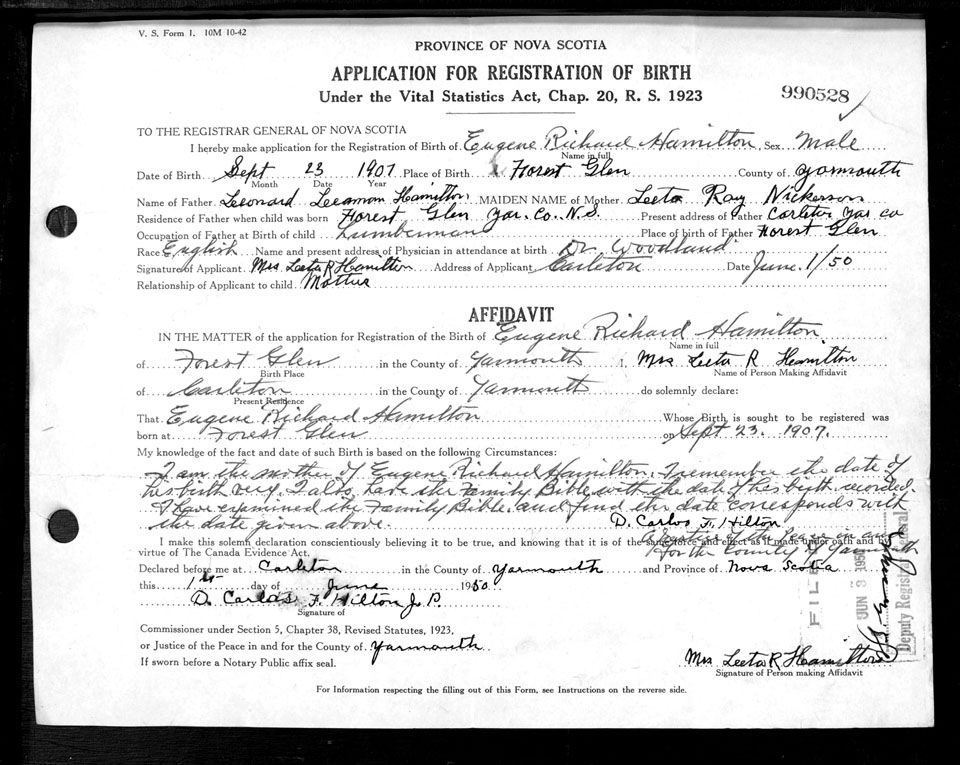 V. S. Form 1. 10M 10-42
PROVINCE OF NOVA SCOTIA
APPLICATION FOR REGISTRATION OF BIRTH
Under the Vital Statistics Act, Chap. 20, R. S. 1923
990528
TO THE REGISTRAR GENERAL OF NOVA SCOTIA
I hereby make application for the Registration of Birth of Eugene Richard Hamilton Sex Male
Name in full
Date of Birth Sept 23 1907 Place of Birth Forest Glen County of Yarmouth
Month Date Year
Name of Father Leonard Leeamon Hamilton MAIDEN NAME of Mother Leeta Ray Nickerson
Residence of Father when child was born Forest Glen Yar. Co. N.S. Present address of Father Carleton Yar Co
Occupation of Father at Birth of child Lumberman Place of birth of Father Forest Glen
Race English Name and present address of Physician in attendance at birth Dr Woodland
Signature of Applicant Mrs Leeta R Hamilton Address of Applicant Carleton Date June 1/50
Relationship of Applicant to child Mother
AFFIDAVIT
IN THE MATTER of the application for Registration of the Birth of Eugene Richard Hamilton
Name in full
of Forest Glen in the County of Yarmouth I, Mrs Leeta R Hamilton
Birth Place Name of Person Making Affidavit
of Carleton in the County of Yarmouth do solemnly declare:
Present Residence
That Eugene Richard Hamilton Whose Birth is sought to be registered was
born at Forest Glen on Sept 23. 1907.
My knowledge of the fact and date of such Birth is based on the following Circumstances:
I am the mother of Eugene Richard Hamilton. I remember the date of
his birth very. I also have the Family Bible with the date of his birth recorded.
I have examined the Family Bible and find the date corresponds with
the date given above. D. Carlos F. Hilton
A Justice of the Peace in and
for the County of Yarmouth
I make this solemn declaration conscientiously believing it to be true, and knowing that it is of the same force and effect as if made under oath and by
virtue of The Canada Evidence Act.
Declared before me at Carleton in the County of Yarmouth and Province of Nova Scotia
this 1st day of June 1950
D. Carlos F. Hilton J. P.
Signature of
Commissioner under Section 5, Chapter 38, Revised Statutes, 1923,
or Justice of the Peace in and for the County of Yarmouth
If sworn before a Notary Public affix seal.
Mrs Leeta R Hamilton
Signature of Person making Affidavit
For Information respecting the filling out of this Form, see Instructions on the reverse side.
JUN 3 1950
Deputy Registrar General